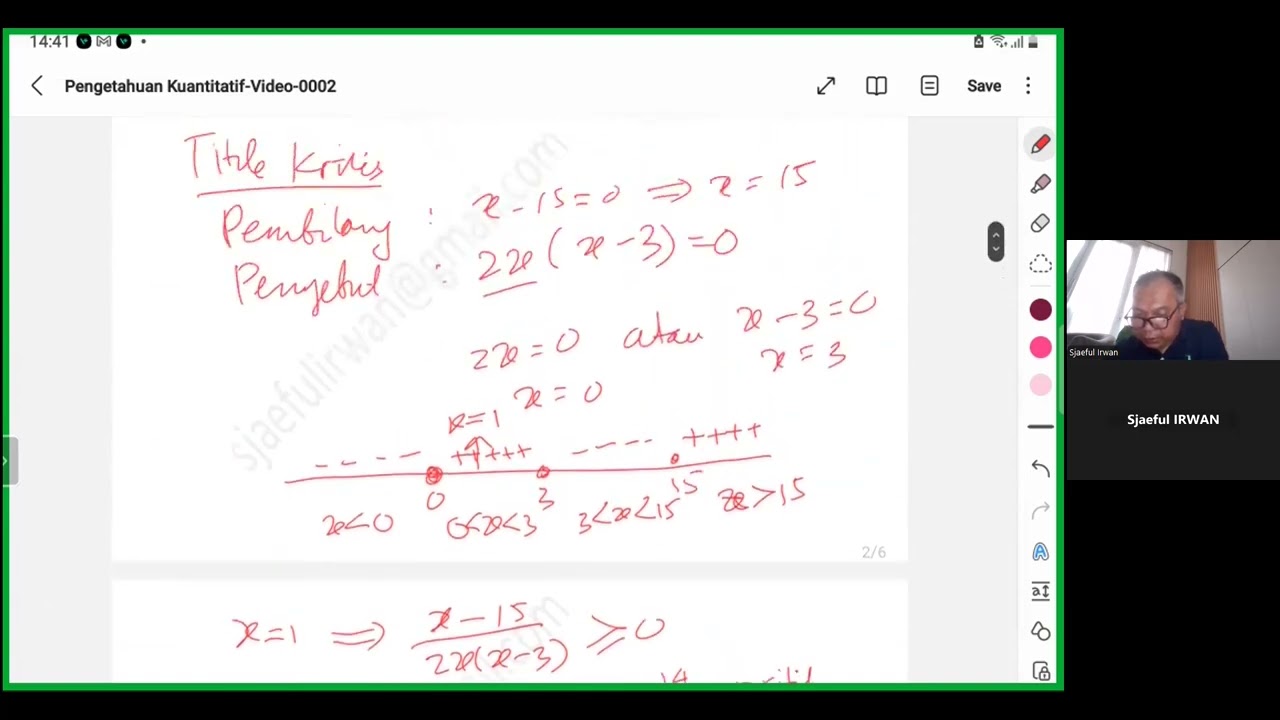 14:41
Pengetahuan Kuantitatif-Video-0002
Save
Titik Kritis
Pembilang : x - 15 = 0 ⇒ x = 15
Penyebut : 2x(x - 3) = 0
2x = 0 atau x - 3 = 0
x = 0 x = 3
x = 1
- - - - +++++ - - - - ++++
0 3 15
x<0 0<x<3 3<x<15 x>15
2/6
x=1 ⇒ x - 15 / 2x(x-3) ≥ 0
sjaefulirwan@gmail.com
Sjaeful Irwan
Sjaeful IRWAN